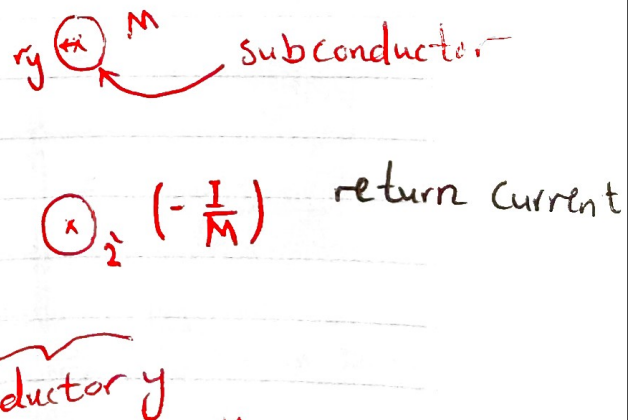 M
ry x subconductor
x 2' (- I/M) return current
ductor y